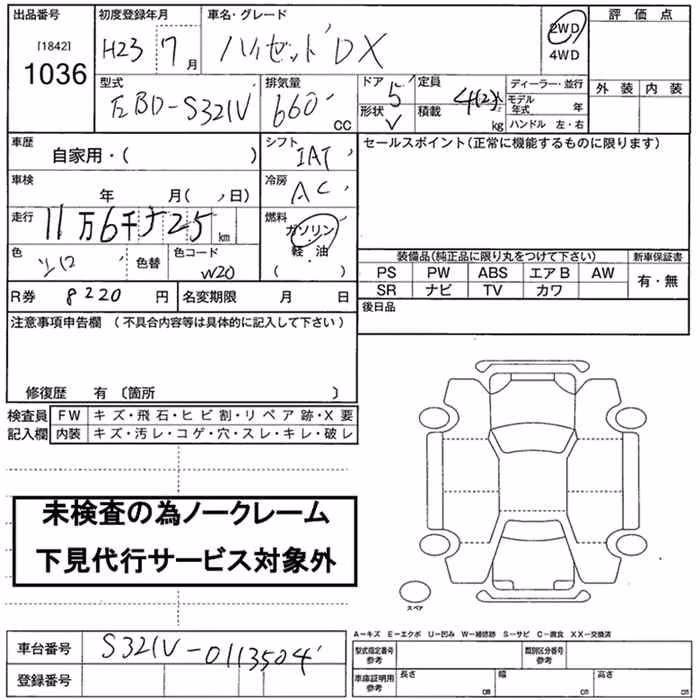 出品番号 初度登録年月 車名・グレード 評価点
[1842] 1036 H23 7月 ハイゼット DX 2WD 4WD
外装 内装
型式 排気量 ドア 定員 ディーラー・並行
EBD-S321V 660 CC 5 4(2)人 モデル年式 年
形状 V 積載 kg ハンドル 左・右
車歴 シフト セールスポイント(正常に機能するものに限ります)
自家用・( ) IAT
車検 冷房
年 月( 、日) AC
走行 11万6千 25 km 燃料 ガソリン・軽油( )
色 シロ 色替 色コード W20
装備品(純正品に限り丸をつけて下さい) 新車保証書
PS PW ABS エアB AW 有・無
SR ナビ TV カワ
R券 8220 円 名変期限 月 日 後日品
注意事項申告欄 (不具合内容等は具体的に記入して下さい)
修復歴 有 〔箇所 〕
検査員 FW キズ・飛石・ヒビ割・リペア跡・X要
記入欄 内装 キズ・汚レ・コゲ・穴・スレ・キレ・破レ
未検査の為ノークレーム
下見代行サービス対象外
スペア
A―キズ E―エクボ U―凹み W―補修跡 S―サビ C―腐食 XX―交換済
車台番号 S321V-0113504
型式指定番号 参考 類別区分番号 参考
登録番号
車庫証明用 参考 長さ cm 幅 cm 高さ cm